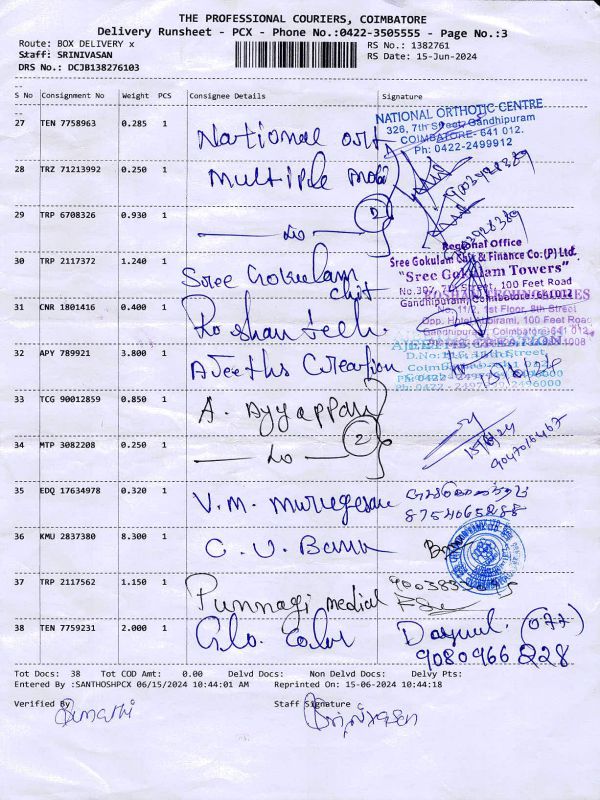 THE PROFESSIONAL COURIERS, COIMBATORE
Delivery Runsheet - PCX - Phone No.:0422-3505555 - Page No.:3
Route: BOX DELIVERY x RS No.: 1382761
Staff: SRINIVASAN RS Date: 15-Jun-2024
DRS No.: DCJB138276103
S No Consignment No Weight PCS Consignee Details Signature
27 TEN 7758963 0.285 1 National ort
NATIONAL ORTHOTIC CENTRE
326, 7th Street, Gandhipuram
COIMBATORE- 641 012.
Ph: 0422-2499912
28 TRZ 71213992 0.250 1 Multiple mobi
29 TRP 6708326 0.930 1 2
30 TRP 2117372 1.240 1 Sree Gokulam chit
Regional Office
Sree Gokulam Chit & Finance Co.(P) Ltd.
"Sree Gokulam Towers"
No.307, 7th Street, 100 Feet Road
Gandhipuram, Coimbatore-641012
31 CNR 1801416 0.400 1 Roshan tech
No.11/2, 1st Floor, 8th Street
100 Feet Road
Coimbatore-641 012
32 APY 789921 3.800 1 Ajeeths Creation
33 TCG 90012859 0.850 1 A. Ayyappan
34 MTP 3082208 0.250 1 2
15/6/24
9047016467
35 EDQ 17634978 0.320 1 V.M. Murugesan
8754065288
36 KMU 2837380 8.300 1 C. U. Bank
37 TRP 2117562 1.150 1 Punnagi medical
38 TEN 7759231 2.000 1 Glo. Color (077)
9080966228
Tot Docs: 38 Tot COD Amt: 0.00 Delvd Docs: Non Delvd Docs: Delvy Pts:
Entered By :SANTHOSHPCX 06/15/2024 10:44:01 AM Reprinted On: 15-06-2024 10:44:18
Verified By Staff Signature
Sumathi Srinivasan